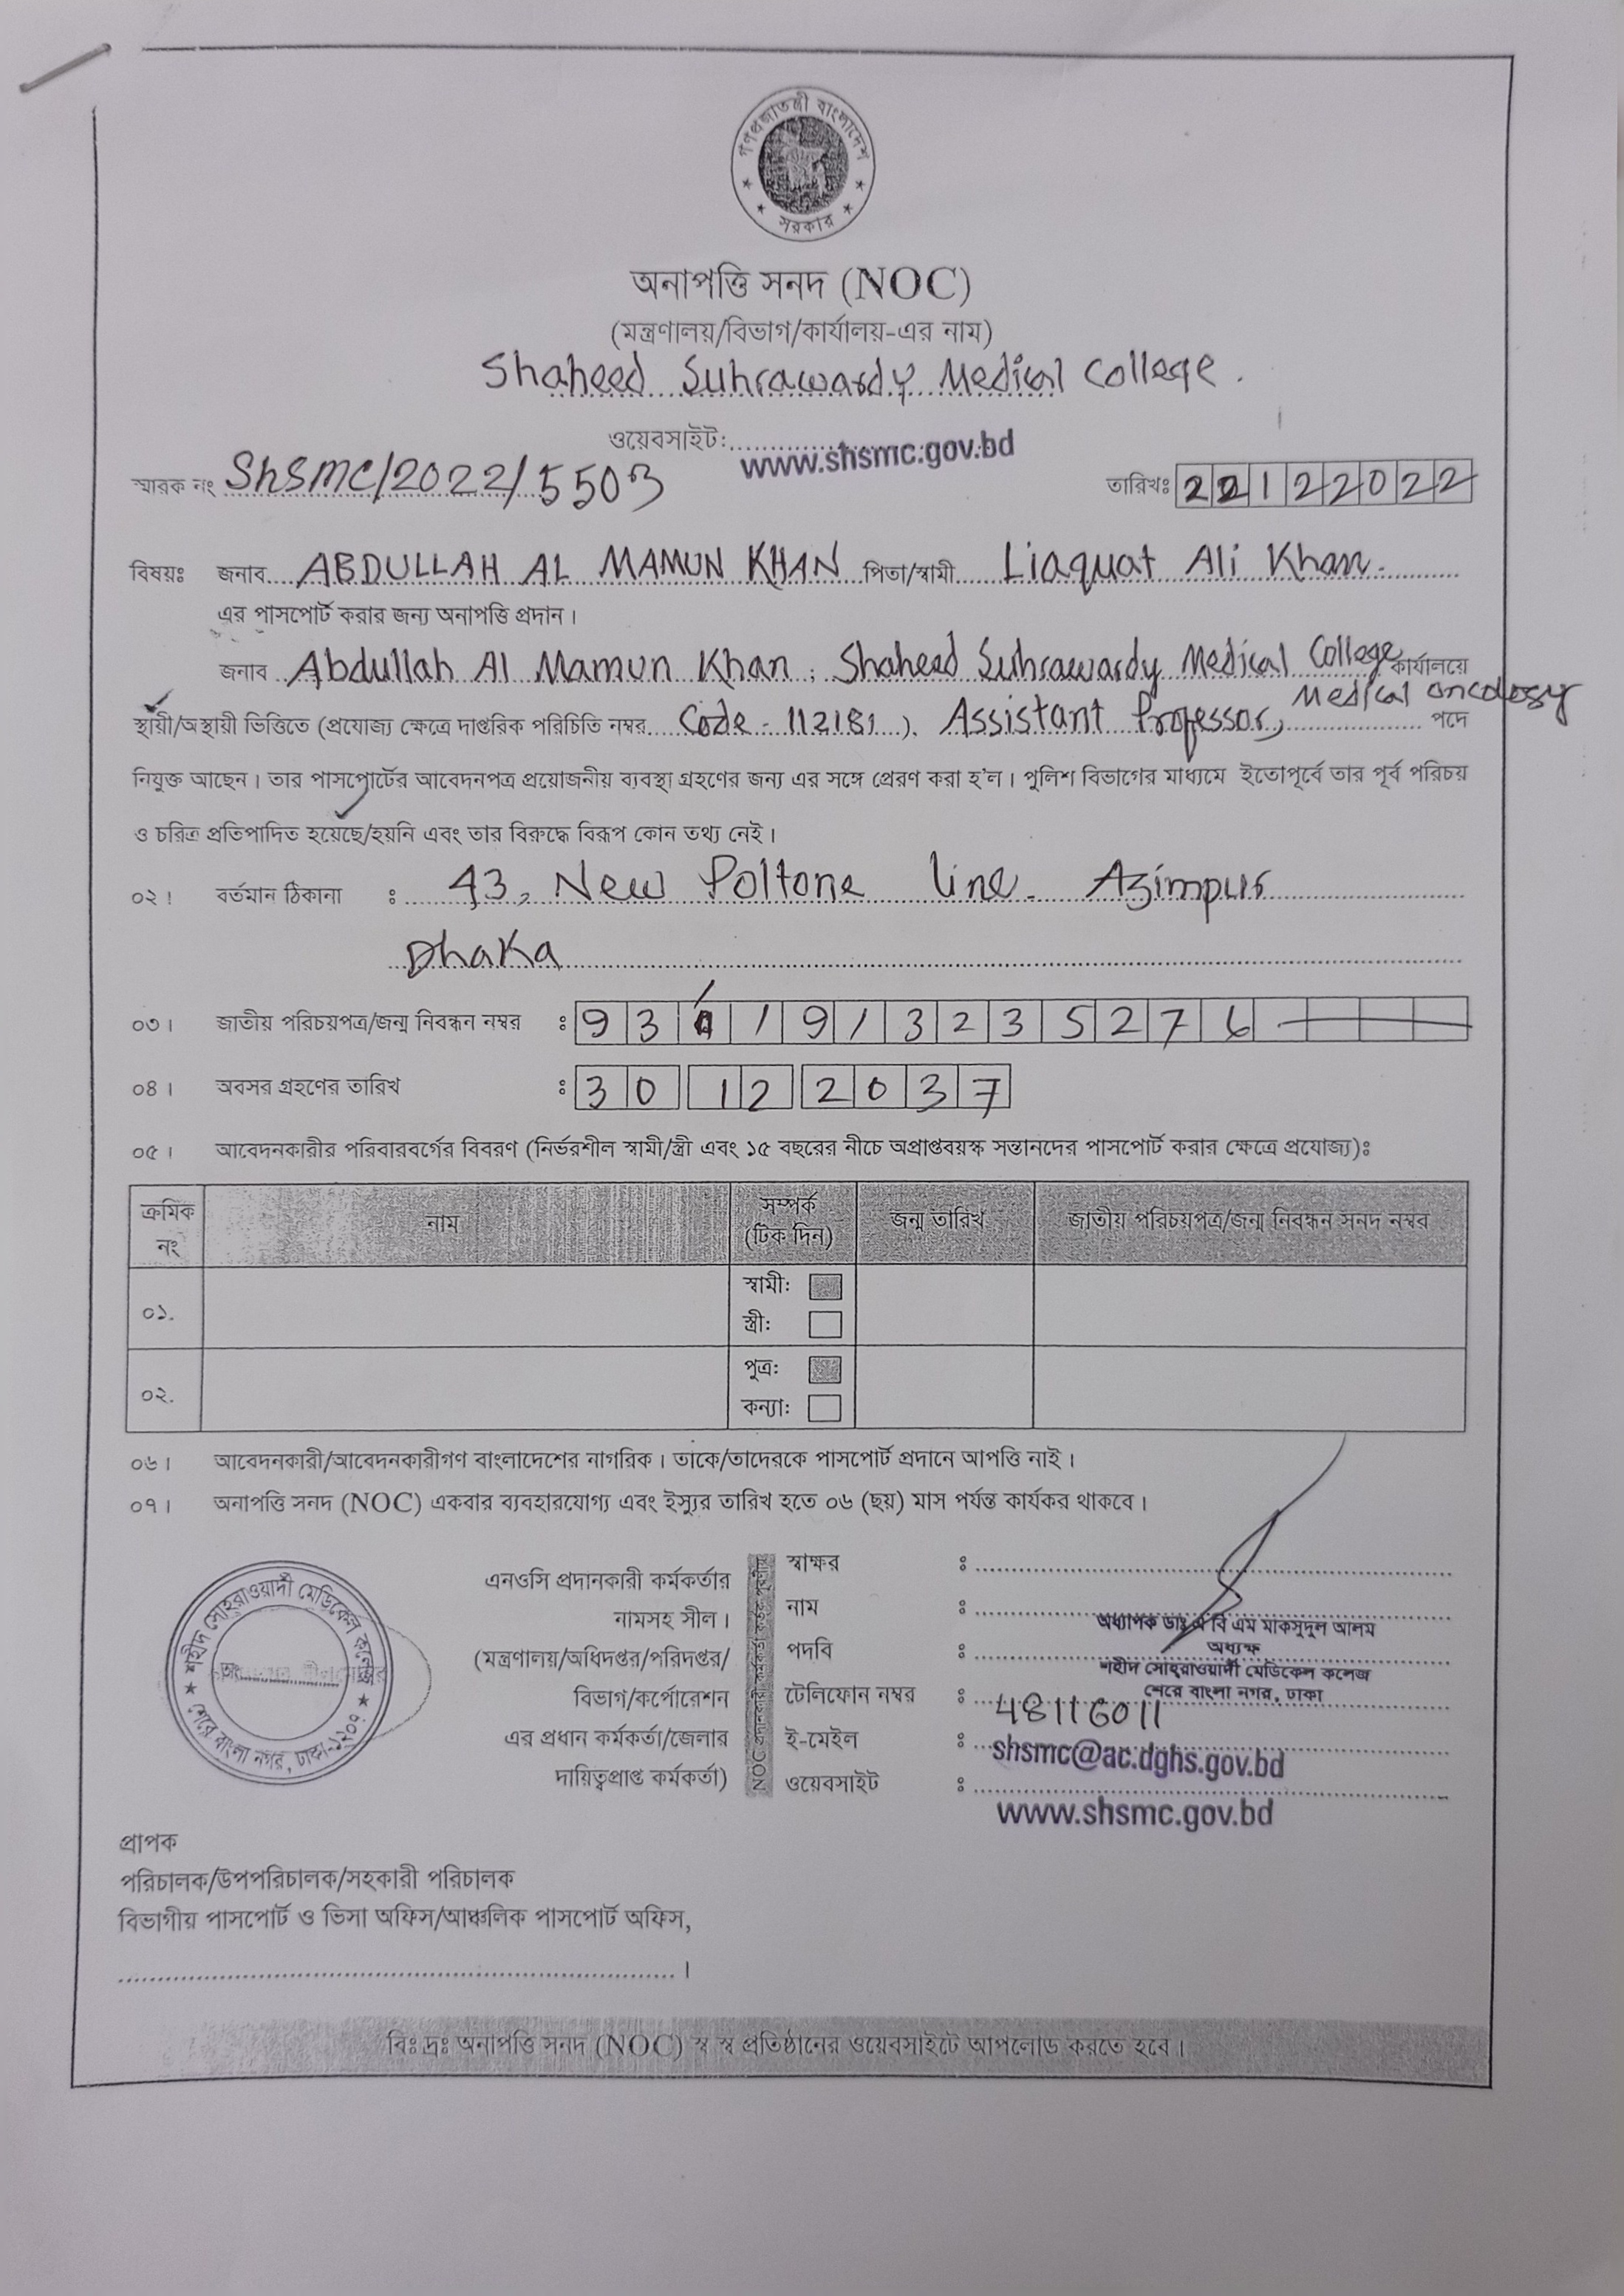 গণপ্রজাতন্ত্রী বাংলাদেশ
সরকার
অনাপত্তি সনদ (NOC)
(মন্ত্রণালয়/বিভাগ/কার্যালয়-এর নাম)
Shaheed Suhrawardy Medical College.
ওয়েবসাইট: www.shsmc.gov.bd
স্মারক নং ShSMC/2022/5503 তারিখঃ 22122022
বিষয়ঃ জনাব ABDULLAH AL MAMUN KHAN পিতা/স্বামী Liaquat Ali Khan.
এর পাসপোর্ট করার জন্য অনাপত্তি প্রদান।
জনাব Abdullah Al Mamun Khan, Shaheed Suhrawardy Medical College কার্যালয়ে
স্থায়ী/অস্থায়ী ভিত্তিতে (প্রযোজ্য ক্ষেত্রে দাপ্তরিক পরিচিতি নম্বর Code - 112181), Assistant Professor, Medical oncology পদে
নিযুক্ত আছেন। তার পাসপোর্টের আবেদনপত্র প্রয়োজনীয় ব্যবস্থা গ্রহণের জন্য এর সঙ্গে প্রেরণ করা হ'ল। পুলিশ বিভাগের মাধ্যমে ইতোপূর্বে তার পূর্ব পরিচয়
ও চরিত্র প্রতিপাদিত হয়েছে/হয়নি এবং তার বিরুদ্ধে বিরূপ কোন তথ্য নেই।
০২। বর্তমান ঠিকানা : 43, New Poltone line. Azimpur
Dhaka
০৩। জাতীয় পরিচয়পত্র/জন্ম নিবন্ধন নম্বর : 93 1913235276
০৪। অবসর গ্রহণের তারিখ : 30 12 2037
০৫। আবেদনকারীর পরিবারবর্গের বিবরণ (নির্ভরশীল স্বামী/স্ত্রী এবং ১৫ বছরের নীচে অপ্রাপ্তবয়স্ক সন্তানদের পাসপোর্ট করার ক্ষেত্রে প্রযোজ্য)ঃ
ক্রমিক নং নাম সম্পর্ক (টিক দিন) জন্ম তারিখ জাতীয় পরিচয়পত্র/জন্ম নিবন্ধন সনদ নম্বর
০১. স্বামী:
স্ত্রী:
০২. পুত্র:
কন্যা:
০৬। আবেদনকারী/আবেদনকারীগণ বাংলাদেশের নাগরিক। তাকে/তাদেরকে পাসপোর্ট প্রদানে আপত্তি নাই।
০৭। অনাপত্তি সনদ (NOC) একবার ব্যবহারযোগ্য এবং ইস্যুর তারিখ হতে ০৬ (ছয়) মাস পর্যন্ত কার্যকর থাকবে।
শহীদ সোহরাওয়ার্দী মেডিকেল কলেজ
শেরে বাংলা নগর, ঢাকা-১২০৭
এনওসি প্রদানকারী কর্মকর্তার
নামসহ সীল।
(মন্ত্রণালয়/অধিদপ্তর/পরিদপ্তর/
বিভাগ/কর্পোরেশন
এর প্রধান কর্মকর্তা/জেলার
দায়িত্বপ্রাপ্ত কর্মকর্তা)
NOC প্রদানকারী কর্মকর্তা কর্তৃক পূরণীয়
স্বাক্ষর :
নাম : অধ্যাপক ডাঃ এ বি এম মাকসুদুল আলম
পদবি : অধ্যক্ষ
শহীদ সোহরাওয়ার্দী মেডিকেল কলেজ
শেরে বাংলা নগর, ঢাকা
টেলিফোন নম্বর : 48116011
ই-মেইল : shsmc@ac.dghs.gov.bd
ওয়েবসাইট : www.shsmc.gov.bd
প্রাপক
পরিচালক/উপপরিচালক/সহকারী পরিচালক
বিভাগীয় পাসপোর্ট ও ভিসা অফিস/আঞ্চলিক পাসপোর্ট অফিস,
বিঃ দ্রঃ অনাপত্তি সনদ (NOC) স্ব স্ব প্রতিষ্ঠানের ওয়েবসাইটে আপলোড করতে হবে।